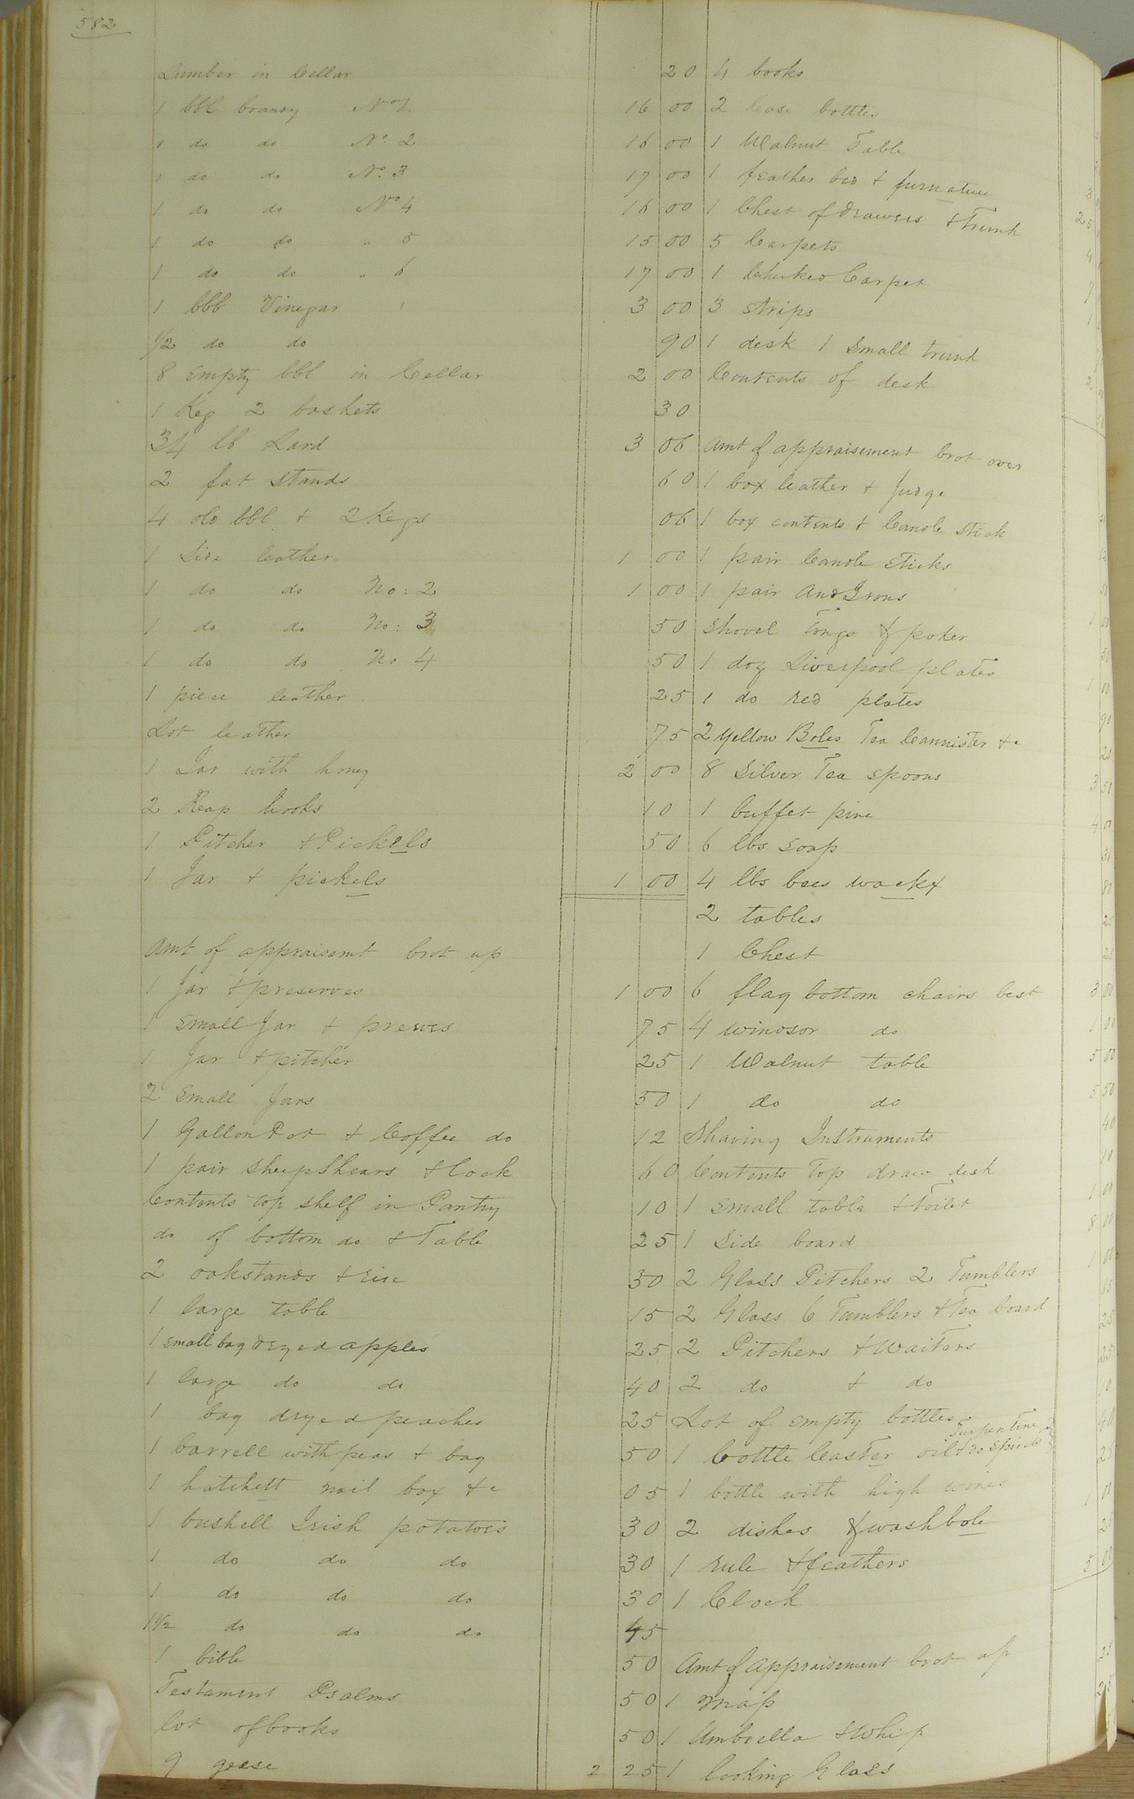 582
Lumber in Cellar 20
1 bbl brandy No 1 16 00
1 do do No. 2 16 00
1 do do No. 3 17 00
1 do do No 4 16 00
1 do do " 5 15 00
1 do do " 6 17 00
1 bbl Vinegar 3 00
1/2 do do 90
8 empty bbl in Cellar 2 00
1 Keg 2 baskets 30
34 lb Lard 3 06
2 fat stands 60
4 old bbl + 2 Kegs 06
1 Side leather 1 00
1 do do No: 2 1 00
1 do do No: 3 50
1 do do No 4 50
1 piece leather 25
Lot leather 75
1 Jar with honey 2 00
2 Reap hooks 10
1 Pitcher + Pickels 50
1 Jar + pickels 1 00
Amt of appraisemt brot up
1 Jar + preserves 1 00
1 small Jar + preserves 75
1 Jar + pitcher 25
2 small Jars 50
1 Gallon Pot + Coffee do 12
1 pair sheep shears + lock 60
Contents top shelf in Pantry 10
do of bottom do + Table 25
2 oakstands + rice 50
1 large table 15
1 small bag dryed apples 25
1 large do do 40
1 bag dryed peaches 25
1 barrell with peas + bag 50
1 hatchett nail box +c 05
1 bushell Irish potatoes 30
1 do do do 30
1 do do do 30
1 1/2 do do do 45
1 bible 50
Testament Psalms 50
lot of books 50
9 geese 2 25
4 books
2 Case bottles
1 Walnut Table
1 feather bed + furnature
1 Chest of drawers + Trunk
5 Carpets
1 Checked Carpet
3 strips
1 desk 1 small trunk
Contents of desk
Amt of appraisement brot over
1 box leather + Judge
1 box contents + Candle stick
1 pair Candle sticks
1 pair And Irons
Shovel Tongs & poker
1 doz Liverpool plates
1 do red plates
2 Yellow Boles Tea Cannister +c
8 Silver Tea spoons
1 buffet pine
6 lbs soap
4 lbs bees wackx
2 tables
1 Chest
6 flag bottom chairs best
4 windsor do
1 Walnut table
1 do do
Shaving Instruments
Contents top draw desk
1 small table + toilet
1 Side board
2 Glass Pitchers 2 Tumblers
2 Glass 6 Tumblers + Tea board
2 Pitchers + Waiters
2 do + do
Lot of empty bottles
1 bottle Caster oil + do Spirits Turpentine
1 bottle with high wines
2 dishes & washbole
1 rule + feathers
1 Clock
Amt of appraisement brot up
1 map
1 Umbrella + Whip
1 looking Glass